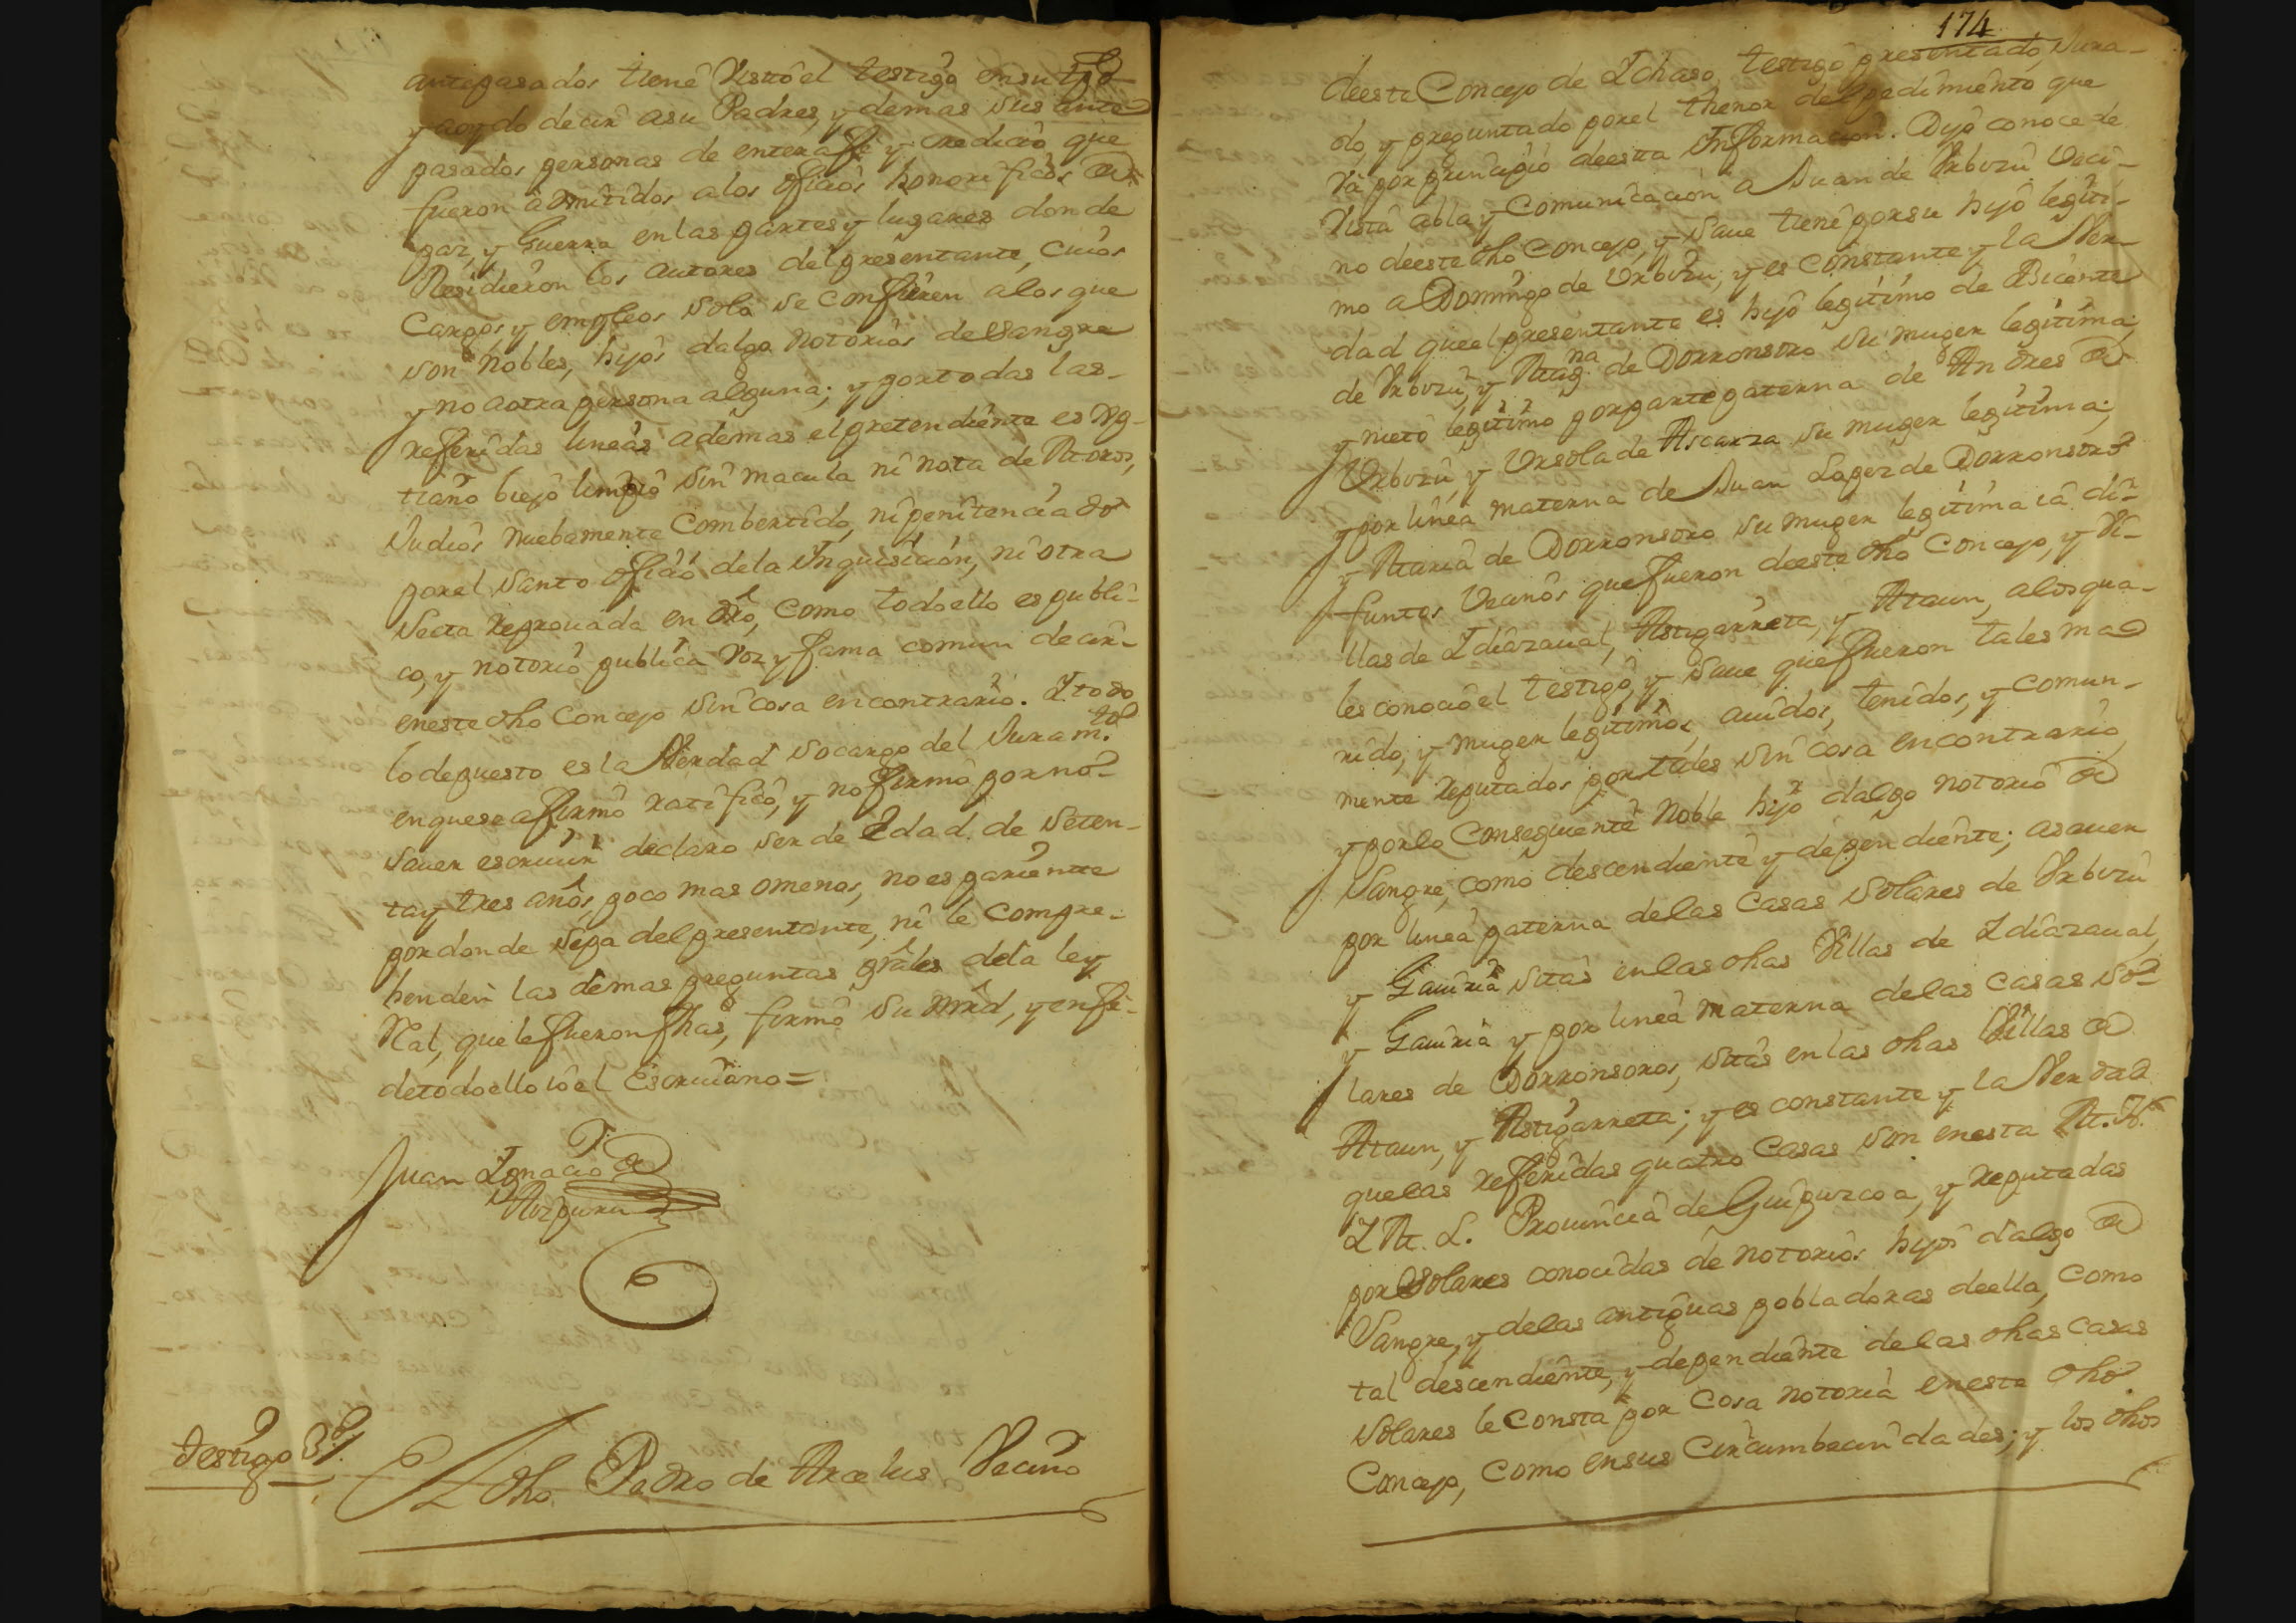 antepasados tiene visto el testigo en su tpo
y aoydo decir asu Padres, y demas sus ante
pasados personas de entera fe y credicio que
fueron admitidos alos oficios honorificos de
paz, y Guerra en las partes y lugares donde
Residieron los autores del presentante, cuios
Cargos y empleos solo se confieren alos que
son Nobles, hijos dalgo Notorios de sangre
y no aotra persona alguna; y por todas las
refferidas lineas ademas el pretendiente es xp-
tiano biejo limpio sin macula ni nota de Moros,
Judios nuebamente Combertido, ni penitenciado
por el Santo oficio dela Inquisicion, ni otra
Secta Reprouada en dro, como todo ello es publi-
co, y notorio publica voz y fama comun decir
en este dho Concejo sin cosa en contrario. I todo
lo depuesto es la Verdad socargo del Juram.to
en que se affirmó ratificó, y no firmó por no
sauer escriuir declaro ser de Edad de seten-
tay tres años, poco mas omenos, no es pariente
por donde sepa del presentante, ni le compre-
henden las demas preguntas grãles dela ley
Real, que le fueron fhas, firmó su mrd, y en fe
de todo ello io el Escriuano =
Juan Ignacio de
Aizpuru
Testigo 3.º
El dho Pedro de Arcelus Vecino
174
de este Concejo de Ichaso, testigo presentado, Jura-
do, y preguntado por el thenor del pedimiento que
vá por principio de esta Informacion. Dijo conoce de
vista abla y comunicacion a Juan de Vrbuzu Veci-
no de este dho Concejo, y saue tiene por su hijo legiti-
mo a Domingo de Vrbuzu, y es constante y la Ver-
dad que el presentante es hijo legitimo de Bicente
de Vrbuzu, y Mag.na de Dorronsoro su muger legitima;
y nieto legitimo por parte paterna de Andres de
Vrbuzu, y Vrsola de Ascarza su muger legitima;
y por linea materna de Juan Lopez de Dorronsoro
y Maria de Dorronsoro su muger legitima ia di-
funtos Vecinos que fueron de este dho Concejo, y Vi-
llas de Idiazaual, Astigarreta, y Ataun, alos qua-
les conocio el testigo, y saue que fueron tales ma
rido, y muger legitimos, auidos, tenidos, y comun-
mente reputados por tales sin cosa en contrario
y por lo Conseguiente Noble hijo dalgo notorio de
Sangre, como descendiente y dependiente; asauer
por linea paterna delas Casas Solares de Vrbuzu
y Gauiria sitas en las dhas Villas de Idiazaual,
y Gauiria y por linea materna delas casas so-
lares de Dorronsoros, sitas en las dhas Villas de
Ataun, y Astigarreta; y es constante y la Verdad
que las refferidas quatro Casas son en esta M. N.
I M. L. Prouincia de Guipuzcoa, y reputadas
por Solares conocidas de notorios hijos dalgo de
Sangre, y delas antiguas pobladoras de ella, como
tal descendiente, y dependiente de las dhas casas
Solares le Consta por cosa notoria en este dho
Concejo, como en sus circumbecindades; y los dhos